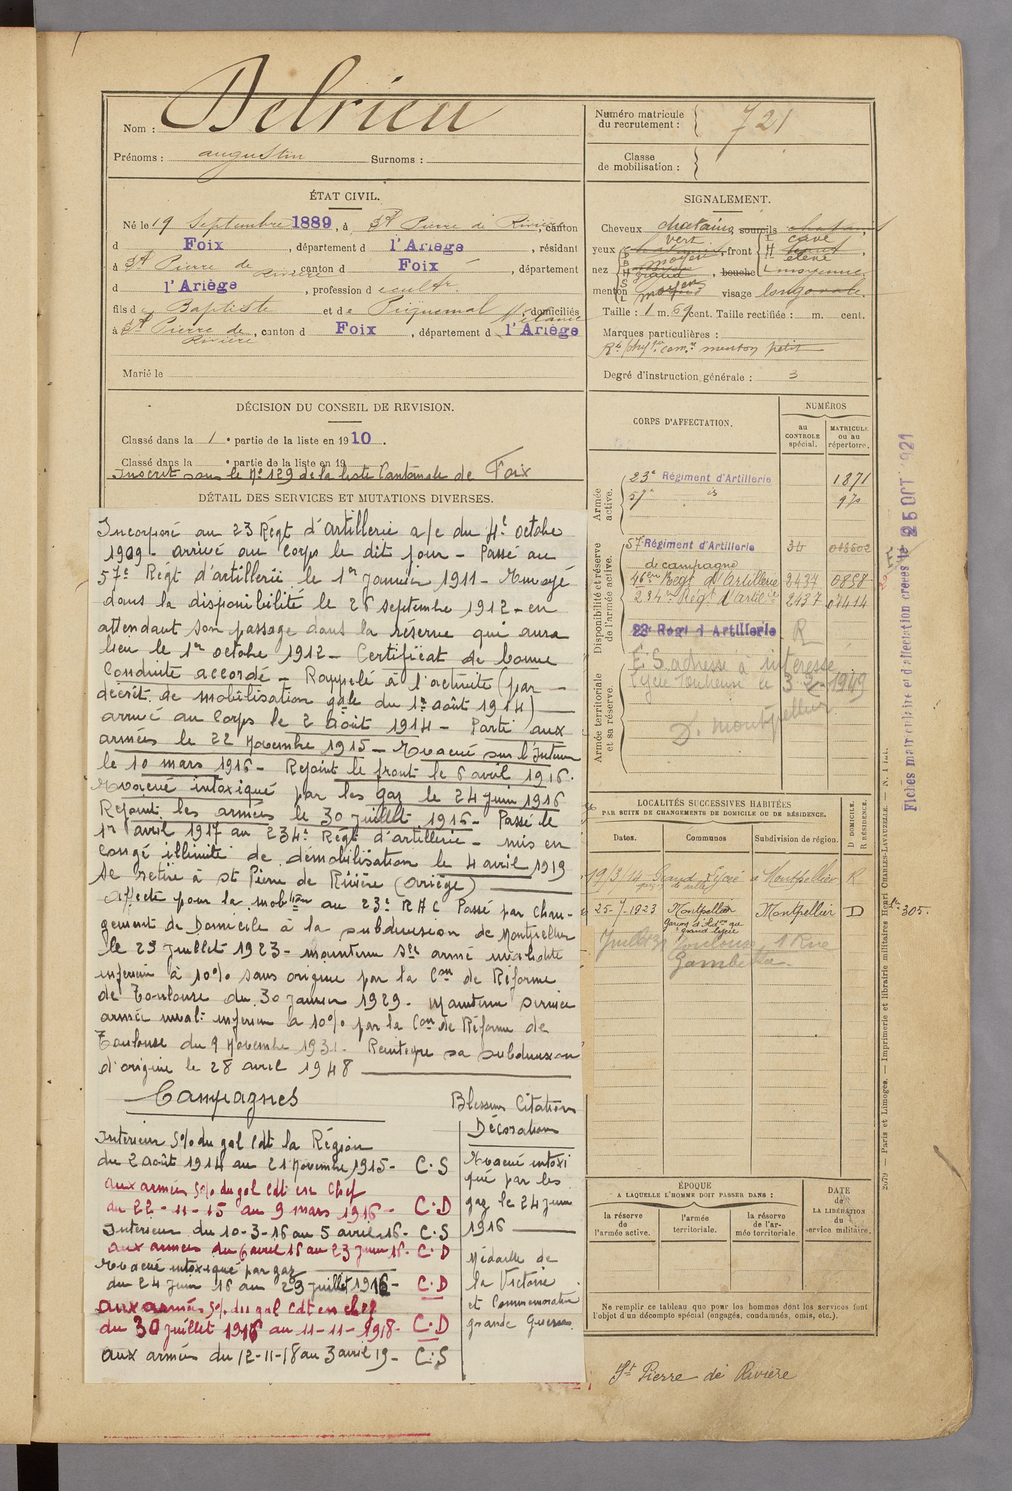 Nom : Delrieu
Prénoms : augustin Surnoms :
Numéro matricule du recrutement : 721
Classe de mobilisation :
ÉTAT CIVIL.
Né le 19 Septembre 1889, à St Pierre de Rivière, canton
d Foix, département d l'Ariège, résidant
à St Pierre de Rivière, canton d Foix, département
d l'Ariège, profession d cultr.
fils de Baptiste et de Piquemal Mélanie domiciliés
à St Pierre de Rivière, canton d Foix, département d l'Ariège
Marié le
SIGNALEMENT.
Cheveux chatains, sourcils chatai
yeux vert, front cave
nez moyen, bouche moyenne
menton visage long ovale.
Taille : 1 m. 69 cent. Taille rectifiée : m. cent.
Marques particulières :
menton petit
Degré d'instruction générale : 3
DÉCISION DU CONSEIL DE REVISION.
Classé dans la 1e partie de la liste en 1910.
Classé dans la e partie de la liste en 19
Inscrit sous le No 129 de la liste Cantonale de Foix
DÉTAIL DES SERVICES ET MUTATIONS DIVERSES.
Incorporé au 23 Régt d'artillerie a/c du 4e octobre
1909 arrivé au Corps le dit jour - Passé au
57e Régt d'artillerie le 1er Janvier 1911 - Envoyé
dans la disponibilité le 25 septembre 1912 - en
attendant son passage dans la réserve qui aura
lieu le 1er octobre 1912 - Certificat de bonne
Conduite accordé - Rappelé à l'activité (par
décret de mobilisation gale du 1er août 1914)
arrivé au Corps le 2 août 1914 - Parti aux
armées le 22 Novembre 1915 - Evacué sur l'Intérieur
le 10 mars 1916 - Rejoint le front le 6 avril 1916.
Evacué intoxiqué par les gaz le 24 Juin 1916
Rejoint les armées le 30 juillet 1916 - Passé le
1er avril 1917 au 234e Régt d'artillerie - mis en
congé illimité de démobilisation le 4 avril 1919
se retire à St Pierre de Rivière (Ariège)
affecté pour la mobon au 23e RAC Passé par Chan-
gement de Domicile à la subdivision de Montpellier
le 25 Juillet 1923 - maintenu Sce armé invalidité
inférieure à 10% sans origine par la Con de Réforme
de Toulouse du 30 Janvier 1929. Maintenu Service
armée inval: inférieure à 10% par la Con de Réforme de
Toulouse du 9 Novembre 1931. Réintègre sa subdivision
d'origine le 28 avril 1948
Campagnes
Intérieur S/o du gal Cdt la Région
du 2 août 1914 au 21 Novembre 1915 - C.S
aux armées S/o du gal Cdt en Chef
du 22-11-15 au 9 mars 1916 - C.D
Intérieur du 10-3-16 au 5 avril 16 - C.S
aux armées du 6 avril 16 au 23 Juin 16 - C.D
Evacué intoxiqué par gaz
du 24 Juin 16 au 29 juillet 1916 - C.D
aux armées S/o du gal Cdt en chef
du 30 juillet 1916 au 11-11-1918 - C.D
aux armées du 12-11-18 au 3 avril 19 - C.S
Blessures Citations
Décorations
Evacué intoxi
qué par les
gaz le 24 juin
1916
Médaille de
la Victoire
et Commémorative
grande Guerre.
CORPS D'AFFECTATION.
NUMÉROS
au CONTROLE spécial.
MATRICULE ou au répertoire.
Armée active.
23e Régiment d'Artillerie 1871
57e do 970
Disponibilité et réserve de l'armée active.
57 Régiment d'Artillerie
de campagne
46eme Regt d'Artillerie 2434
234eme Regt d'Artillerie 2437 04414
23e Regt d'Artillerie R
Armée territoriale et sa réserve.
E.S. adresse à intéressé
Lycée Toulouse le 1949
D. Montpellier
LOCALITÉS SUCCESSIVES HABITÉES
PAR SUITE DE CHANGEMENTS DE DOMICILE OU DE RÉSIDENCE.
Dates. Communes Subdivision de région. D DOMICILE. R RÉSIDENCE.
19/3/14 Grand Lycée à Montpellier R
25-7-1923 Montpellier Montpellier D
Garçon de salle au grand lycée
Toulouse, 1 Rue
Gambetta.
No 305.
ÉPOQUE
A LAQUELLE L'HOMME DOIT PASSER DANS :
la réserve de l'armée active.
l'armée territoriale.
la réserve de l'armée territoriale.
DATE de LA LIBÉRATION du service militaire.
Ne remplir ce tableau que pour les hommes dont les services font
l'objet d'un décompte spécial (engagés, condamnés, omis, etc.).
St Pierre de Rivière
Fiches matriculaire et d'affectation créées le 25 OCT 1921
2079 — Paris et Limoges. — Imprimerie et librairie militaires Henri CHARLES-LAVAUZELLE.